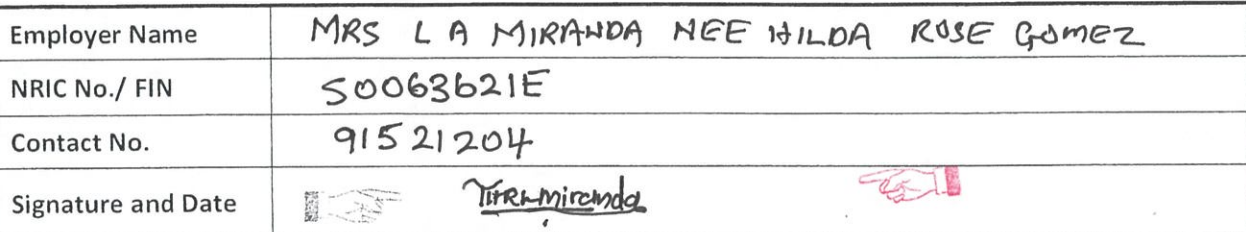 Employer Name MRS L A MIRANDA NEE HILDA ROSE GOMEZ
NRIC No./ FIN S0063621E
Contact No. 91521204
Signature and Date